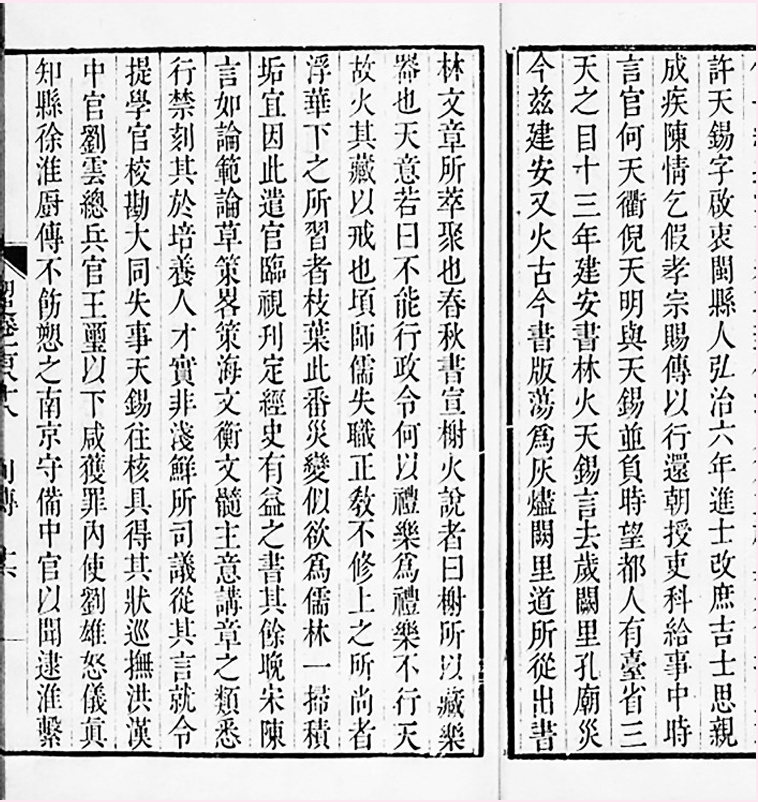 許天錫字啟衷閩縣人弘治六年進士改庶吉士思親
成疾陳情乞假孝宗賜傳以行還朝授吏科給事中時
言官何天衢倪天明與天錫並負時望都人有臺省三
天之目十三年建安書林火天錫言去歲闕里孔廟災
今茲建安又火古今書版蕩爲灰燼闕里道所從出書
林文章所萃聚也春秋書宣榭火說者曰榭所以藏樂
器也天意若曰不能行政令何以禮樂爲禮樂不行天
故火其藏以戒也頃師儒失職正教不修上之所尚者
浮華下之所習者枝葉此番災變似欲爲儒林一掃積
垢宜因此遣官臨視刊定經史有益之書其餘晚宋陳
言如論範論草策畧策海文衡文髓主意講章之類悉
行禁刻其於培養人才實非淺鮮所司議從其言就令
提學官校勘大同失事天錫往核具得其狀巡撫洪漢
中官劉雲總兵官王璽以下咸獲罪內使劉雄怒儀眞
知縣徐淮厨傳不飭愬之南京守備中官以聞逮淮繫